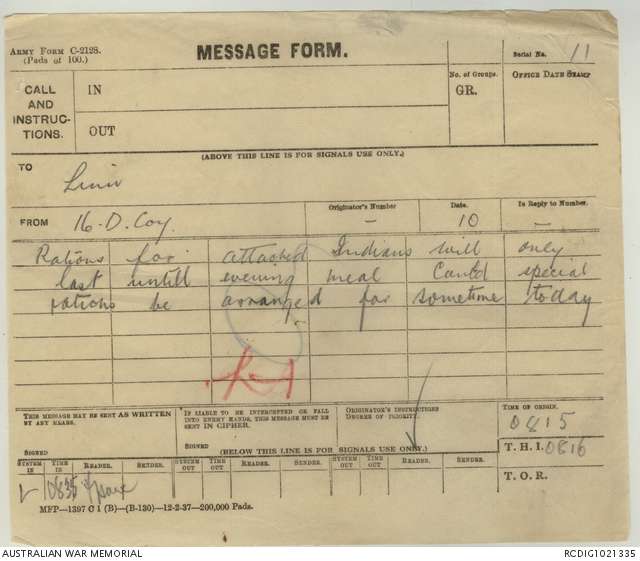 Army Form C-2128.
(Pads of 100.)
MESSAGE FORM.
Serial No. 11
CALL
AND
INSTRUC-
TIONS.
IN
OUT
No. of Groups.
GR.
Office Date Stamp
(ABOVE THIS LINE IS FOR SIGNALS USE ONLY.)
TO
FROM 16. D. Coy.
Originator's Number
—
Date.
10
In Reply to Number.
—
Rations for attached Indians will only
last untill evening meal Could special
rations be arranged for sometime today
THIS MESSAGE MAY BE SENT AS WRITTEN
BY ANY MEANS.
SIGNED
IF LIABLE TO BE INTERCEPTED OR FALL
INTO ENEMY HANDS, THIS MESSAGE MUST BE
SENT IN CIPHER.
SIGNED
ORIGINATOR'S INSTRUCTIONS
DEGREE OF PRIORITY.
TIME OF ORIGIN.
0815
T.H.I. 0816
T.O.R.
(BELOW THIS LINE IS FOR SIGNALS USE ONLY.)
System In Time In Reader. Sender. System Out Time Out Reader. Sender. System Out Time Out Reader. Sender.
0835
MFP—1397 C 1 (B)—(B-130)—12-2-37—200,000 Pads.
AUSTRALIAN WAR MEMORIAL
RCDIG1021335